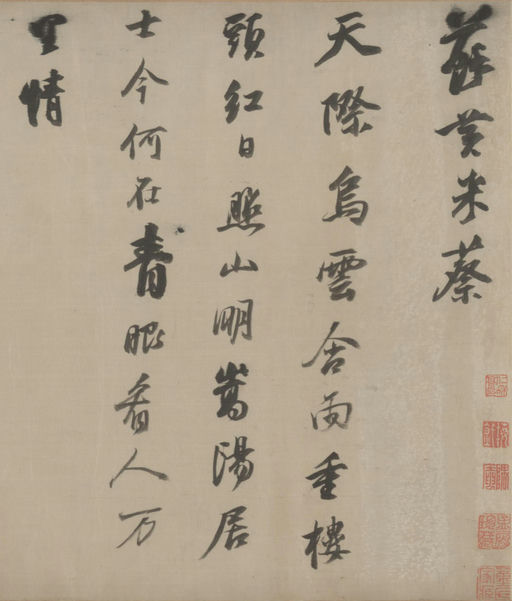 蘇黃米蔡
天際烏雲含雨重樓
頭紅日照山明嵩陽居
士今何在青眼看人万
里情